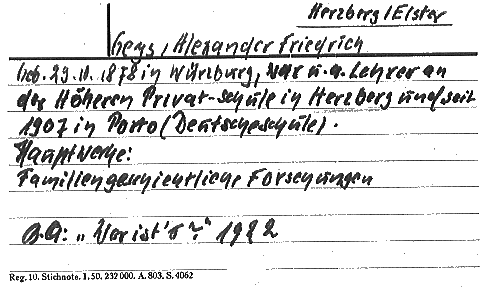 Herzberg/Elster
Heys, Alexander Friedrich
Geb. 29.10.1878 in Würzburg, war u.a. Lehrer an
der Höheren Privat-schule in Herzberg und seit
1907 in Porto (Deutscheschule).
Hauptwerke:
Familiengeschichtliche Forschungen
B.A: „Wer ist's?" 1922
Reg. 10. Stichnote. 1. 50. 232 000. A. 803. S. 4062